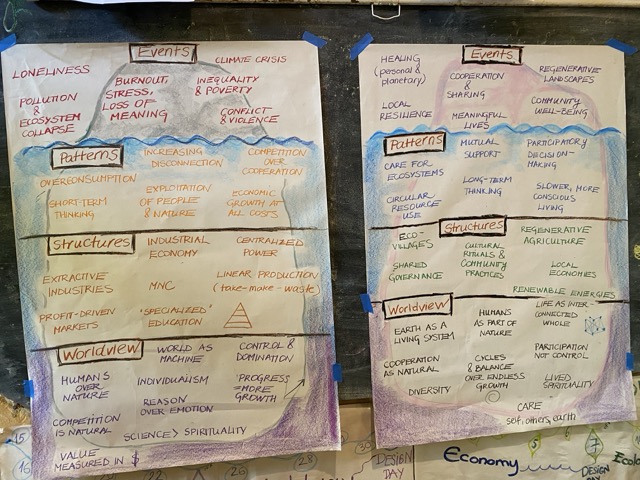 Events
CLIMATE CRISIS
LONELINESS
BURNOUT,
STRESS,
LOSS OF
MEANING
INEQUALITY
& POVERTY
POLLUTION
&
ECOSYSTEM
COLLAPSE
CONFLICT
& VIOLENCE
Patterns
INCREASING
DISCONNECTION
COMPETITION
OVER
COOPERATION
OVERCONSUMPTION
SHORT-TERM
THINKING
EXPLOITATION
OF PEOPLE
& NATURE
ECONOMIC
GROWTH AT
ALL COSTS
Structures
INDUSTRIAL
ECONOMY
CENTRALIZED
POWER
EXTRACTIVE
INDUSTRIES
MNC
LINEAR PRODUCTION
(take-make-waste)
PROFIT-DRIVEN
MARKETS
"SPECIALIZED"
EDUCATION
Worldview
WORLD AS
MACHINE
CONTROL &
DOMINATION
HUMANS
OVER
NATURE
INDIVIDUALISM
"PROGRESS
=MORE"
GROWTH
REASON
OVER EMOTION
COMPETITION
IS NATURAL
SCIENCE > SPIRITUALITY
VALUE
MEASURED IN $
Events
HEALING
(personal &
planetary)
COOPERATION
&
SHARING
REGENERATIVE
LANDSCAPES
LOCAL
RESILIENCE
MEANINGFUL
LIVES
COMMUNITY
WELL-BEING
Patterns
MUTUAL
SUPPORT
PARTICIPATORY
DECISION-
MAKING
CARE FOR
ECOSYSTEMS
LONG-TERM
THINKING
SLOWER, MORE
CONSCIOUS
LIVING
CIRCULAR
RESOURCE
USE
Structures
ECO-
VILLAGES
CULTURAL
RITUALS &
COMMUNITY
PRACTICES
REGENERATIVE
AGRICULTURE
SHARED
GOVERNANCE
LOCAL
ECONOMIES
RENEWABLE ENERGIES
Worldview
HUMANS
AS PART OF
NATURE
LIFE AS INTER-
CONNECTED
WHOLE
EARTH AS A
LIVING SYSTEM
COOPERATION
AS NATURAL
CYCLES
& BALANCE
OVER ENDLESS
GROWTH
PARTICIPATION
NOT CONTROL
DIVERSITY
LIVED
SPIRITUALITY
CARE
self, others, earth
15
16
26
28
DESIGN
DAY
Economy
5
7
DESIGN
DAY